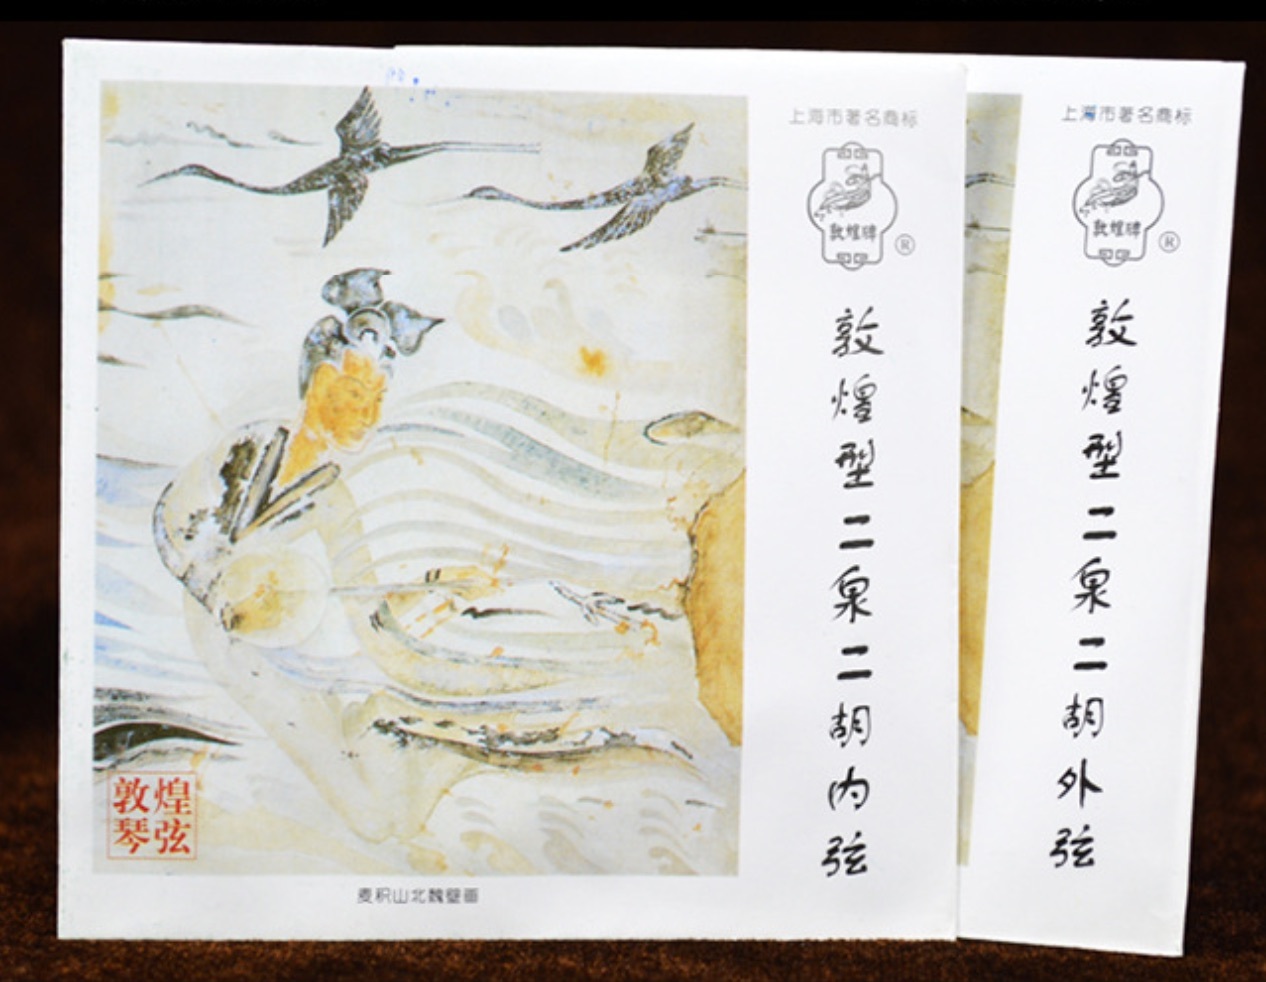 上海市著名商标
敦煌牌
®
敦煌型二泉二胡内弦
敦煌
琴弦
麦积山北魏壁画
上海市著名商标
敦煌牌
®
敦煌型二泉二胡外弦